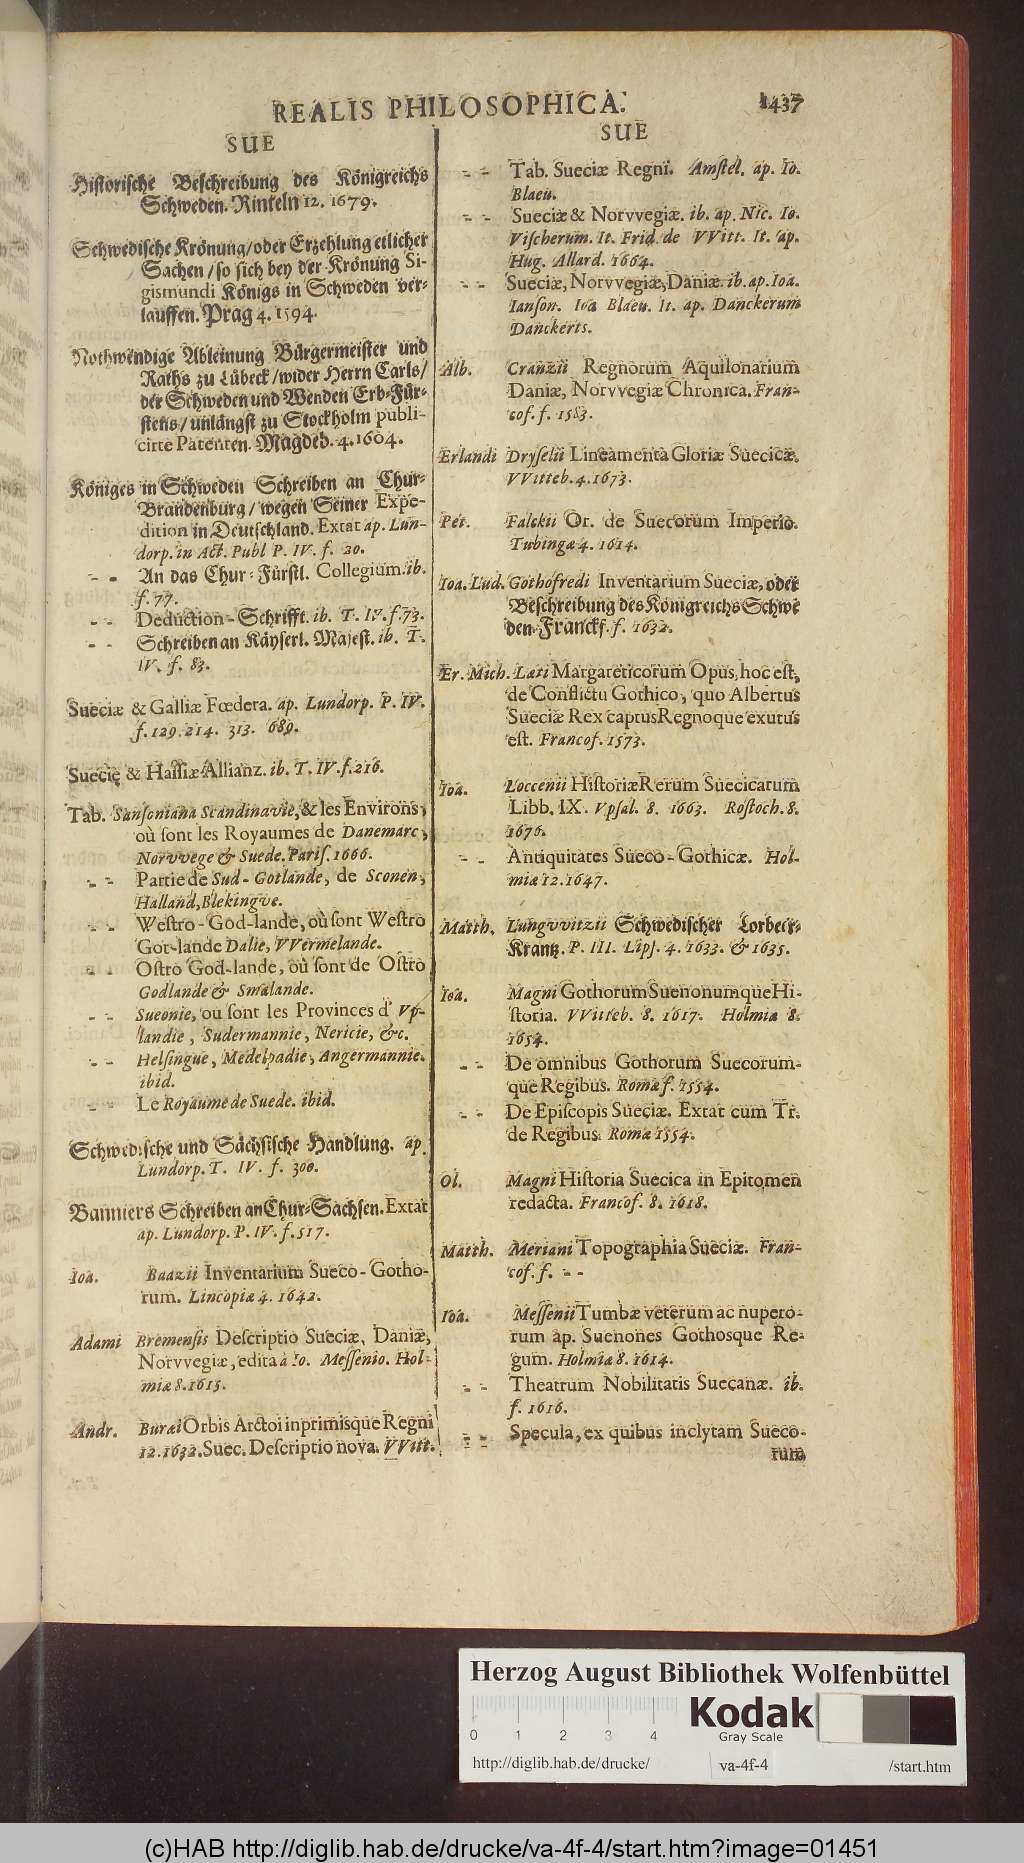 REALIS PHILOSOPHICA.
1437
SUE
Historische Beschreibung des Königreichs
Schweden. Rinteln 12. 1679.
Schwedische Krönung/oder Erzehlung etlicher
Sachen/so sich bey der Krönung Si-
gismundi Königs in Schweden ver-
lauffen. Prag 4. 1594.
Nothwendige Ableinung Bürgermeister und
Raths zu Lübeck/wider Herrn Carls/
der Schweden und Wenden Erb-Für-
stens/unlängst zu Stockholm publi-
cirte Patenten. Magdeb. 4. 1604.
Königes in Schweden Schreiben an Chur-
Brandenburg/wegen Seiner Expe-
dition in Deutschland. Extat ap. Lun-
dorp. in Act. Publ P. IV. f. 20.
- - An das Chur-Fürstl. Collegium. ib.
f. 77.
- - Deduction-Schrifft. ib. T. IV. f. 73.
- - Schreiben an Käyserl. Majest. ib. T.
IV. f. 83.
Sueciæ & Galliæ Fœdera. ap. Lundorp. P. IV.
f. 129. 214. 313. 689.
Suecię & Hassiæ Allianz. ib. T. IV. f. 216.
Tab. Sansoniana Scandinavie, & les Environs,
où sont les Royaumes de Danemarc,
Norvvege & Suede. Paris. 1666.
- - Partie de Sud-Gotlande, de Sconen,
Halland, Blekingve.
- - Westro-God-lande, où sont Westro
Got-lande Dalie, VVermelande.
- - Ostro God-lande, où sont de Ostro
Godlande & Smalande.
- - Sueonie, ou sont les Provinces d' Vp-
landie, Sudermannie, Nericie, &c.
- - Helsingue, Medelpadie, Angermannie.
ibid.
- - Le Royaume de Suede. ibid.
Schwedische und Sächsische Handlung. ap.
Lundorp. T. IV. f. 300.
Banniers Schreiben an Chur-Sachsen. Extat
ap. Lundorp. P. IV. f. 517.
Ioa. Baazii Inventarium Sueco-Gotho-
rum. Lincopiæ 4. 1642.
Adami Bremensis Descriptio Sueciæ, Daniæ,
Norvvegiæ, edita à Io. Messenio. Hol-
miæ 8. 1615.
Andr. Buræi Orbis Arctoi inprimisque Regni
12. 1632. Suec. Descriptio nova. VVitt.
SUE
- - Tab. Sueciæ Regni. Amstel. ap. Io.
Blaeu.
- - Sueciæ & Norvvegiæ. ib. ap. Nic. Io.
Vischerum. It. Frid. de VVitt. It. ap.
Hug. Allard. 1664.
- - Sueciæ, Norvvegiæ, Daniæ. ib. ap. Ioa.
Ianson. Ioa Blaeu. It. ap. Danckerum
Danckerts.
Alb. Cranzii Regnorum Aquilonarium
Daniæ, Norvvegiæ Chronica. Fran-
cof. f. 1583.
Erlandi Dryselii Lineamenta Gloriæ Suecicæ.
VVitteb. 4. 1673.
Pet. Falckii Or. de Suecorum Imperio.
Tubingæ 4. 1614.
Ioa. Lud. Gothofredi Inventarium Sueciæ, oder
Beschreibung des Königreichs Schwe
den. Franckf. f. 1632.
Er. Mich. Læti Margareticorum Opus, hoc est,
de Conflictu Gothico, quo Albertus
Sueciæ Rex captus Regnoque exutus
est. Francof. 1573.
Ioa. Loccenii Historiæ Rerum Suecicarum
Libb. IX. Vpsal. 8. 1663. Rostoch. 8.
1676.
- - Antiquitates Sueco-Gothicæ. Hol-
miæ 12. 1647.
Matth. Lungvvitzii Schwedischer Lorbeer-
Krantz. P. III. Lips. 4. 1633. & 1635.
Ioa. Magni Gothorum Suenonumque Hi-
storia. VVitteb. 8. 1617. Holmiæ 8.
1654.
- - De omnibus Gothorum Suecorum-
que Regibus. Romæ f. 1554.
- - De Episcopis Sueciæ. Extat cum Tr.
de Regibus. Romæ 1554.
Ol. Magni Historia Suecica in Epitomen
redacta. Francof. 8. 1618.
Matth. Meriani Topographia Sueciæ. Fran-
cof. f. - -
Ioa. Messenii Tumbæ veterum ac nupero-
rum ap. Suenones Gothosque Re-
gum. Holmiæ 8. 1614.
- - Theatrum Nobilitatis Suecanæ. ib.
f. 1616.
- - Specula, ex quibus inclytam Sueco-
rum
Herzog August Bibliothek Wolfenbüttel
0 1 2 3 4
Kodak
Gray Scale
http://diglib.hab.de/drucke/ va-4f-4 /start.htm
(c)HAB http://diglib.hab.de/drucke/va-4f-4/start.htm?image=01451